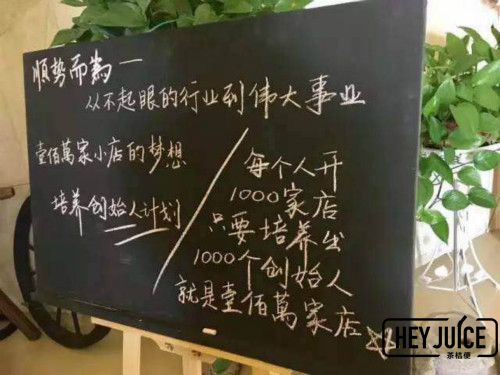 顺势而為一
从不起眼的行业到伟大事业
壹佰萬家小店的梦想
培养创始人计划
每个人开
1000家店
只要培养出
1000个创始人
就是壹佰萬家店
HEY JUICE
茶桔便